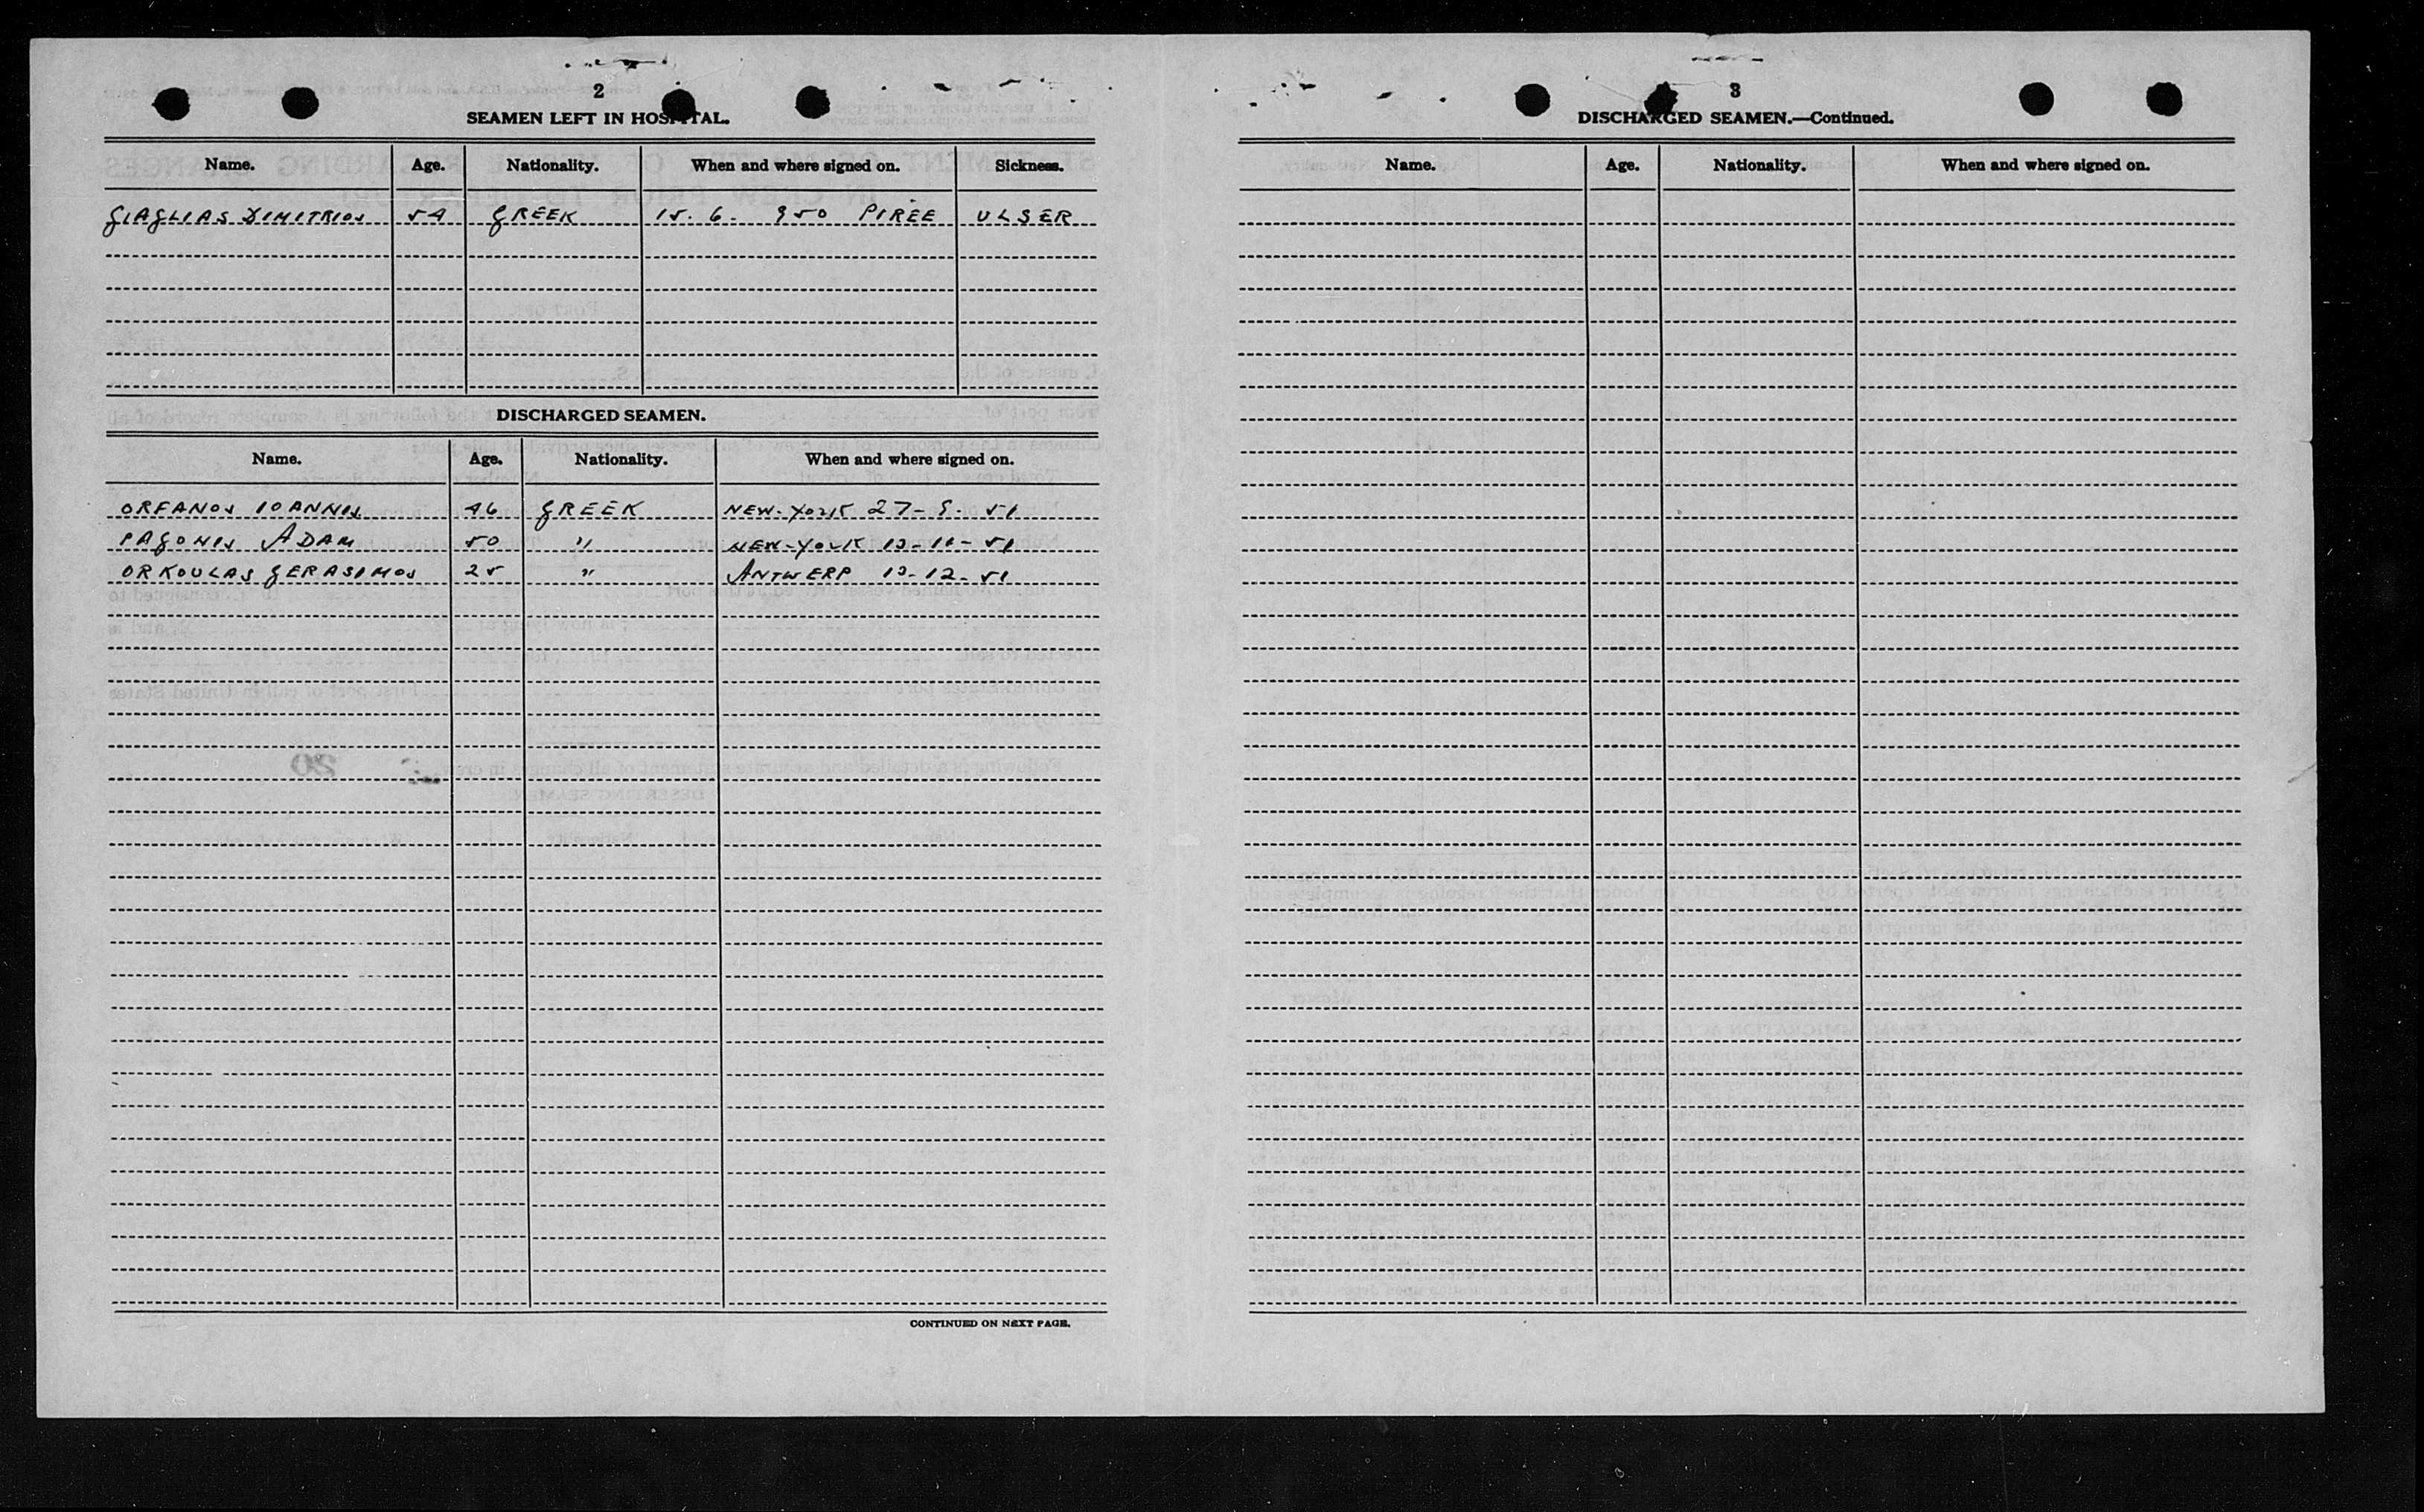 2
SEAMEN LEFT IN HOSPITAL.
Name. Age. Nationality. When and where signed on. Sickness.
GIAGLIAS DIMITRIOS 54 GREEK 15. 6. 950 PIREE ULSER
DISCHARGED SEAMEN.
Name. Age. Nationality. When and where signed on.
ORFANOS IOANNIS 46 GREEK NEW-YORK 27-9-51
PAGONIS ADAM 50 " NEW-YORK
ORKOULAS GERASIMOS 25 " ANTWERP
CONTINUED ON NEXT PAGE.
3
DISCHARGED SEAMEN.—Continued.
Name. Age. Nationality. When and where signed on.